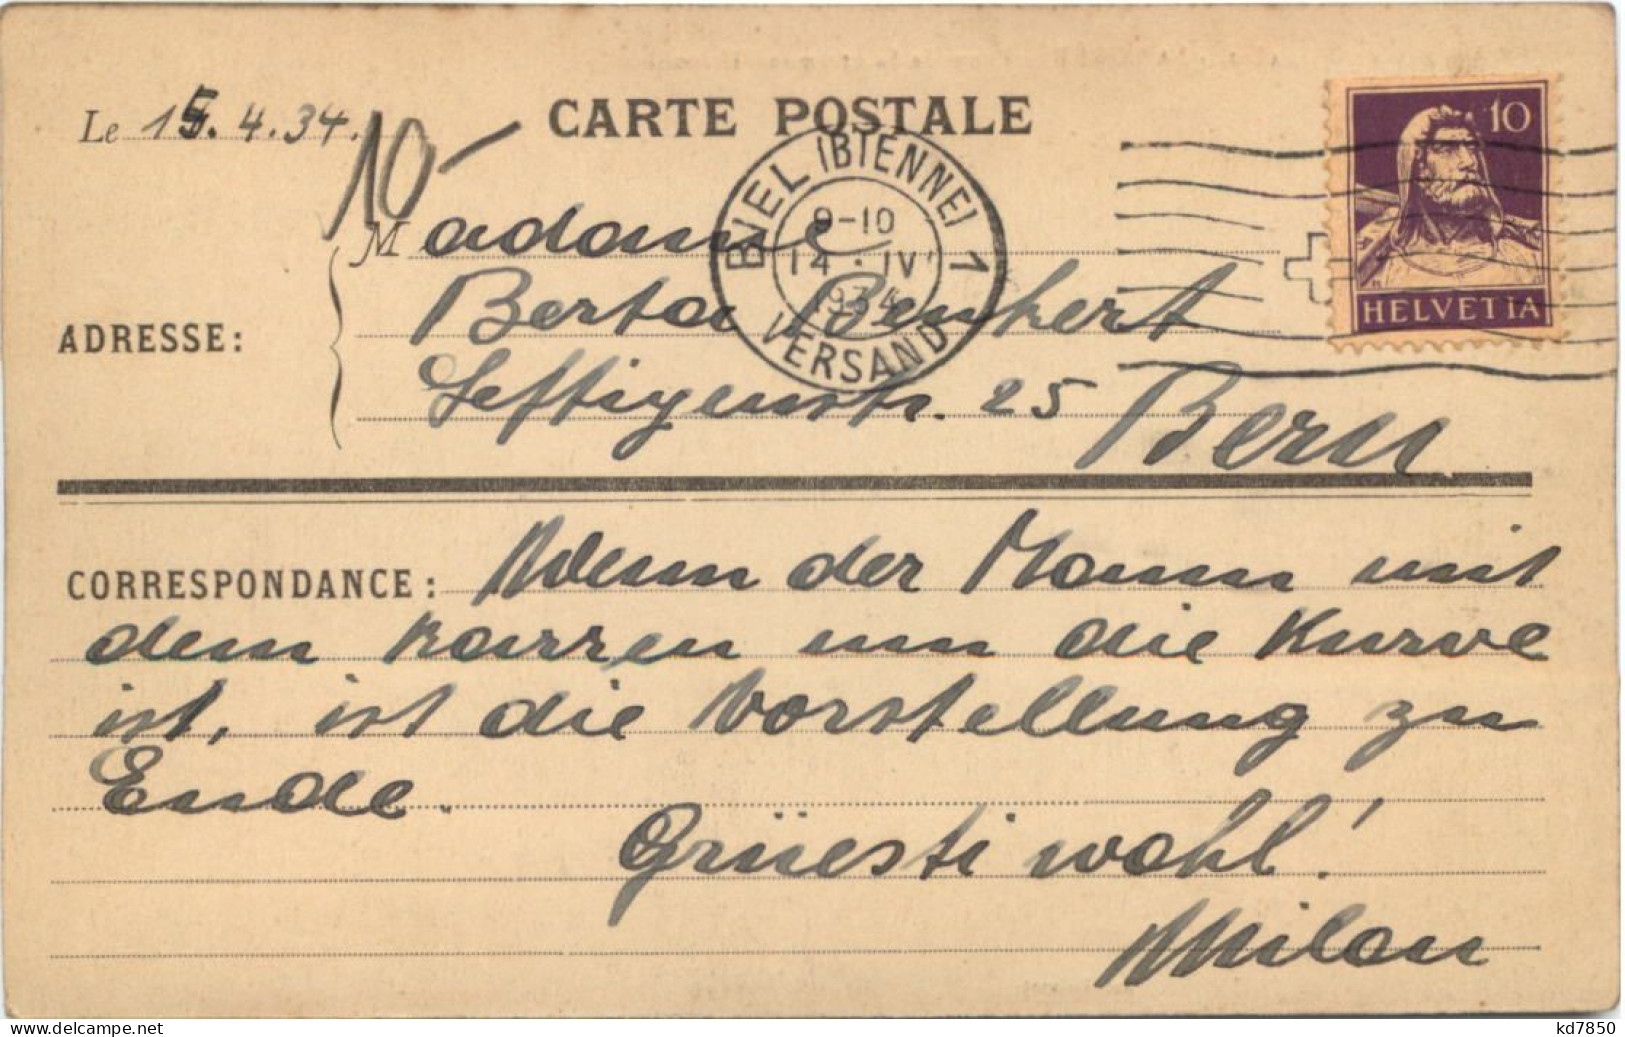 CARTE POSTALE
Le 15.4.34.
10-
BIEL (BIENNE) 1
9-10
14.IV
1934
VERSAND
10
HELVETIA
Madame
ADRESSE: Berta Benkert
Seftigenstr. 25 Bern
CORRESPONDANCE: Wenn der Mann mit
dem Karren um die Kurve
ist, ist die Vorstellung zu
Ende.
Grüesti wohl!
Milan
www.delcampe.net
kd7850